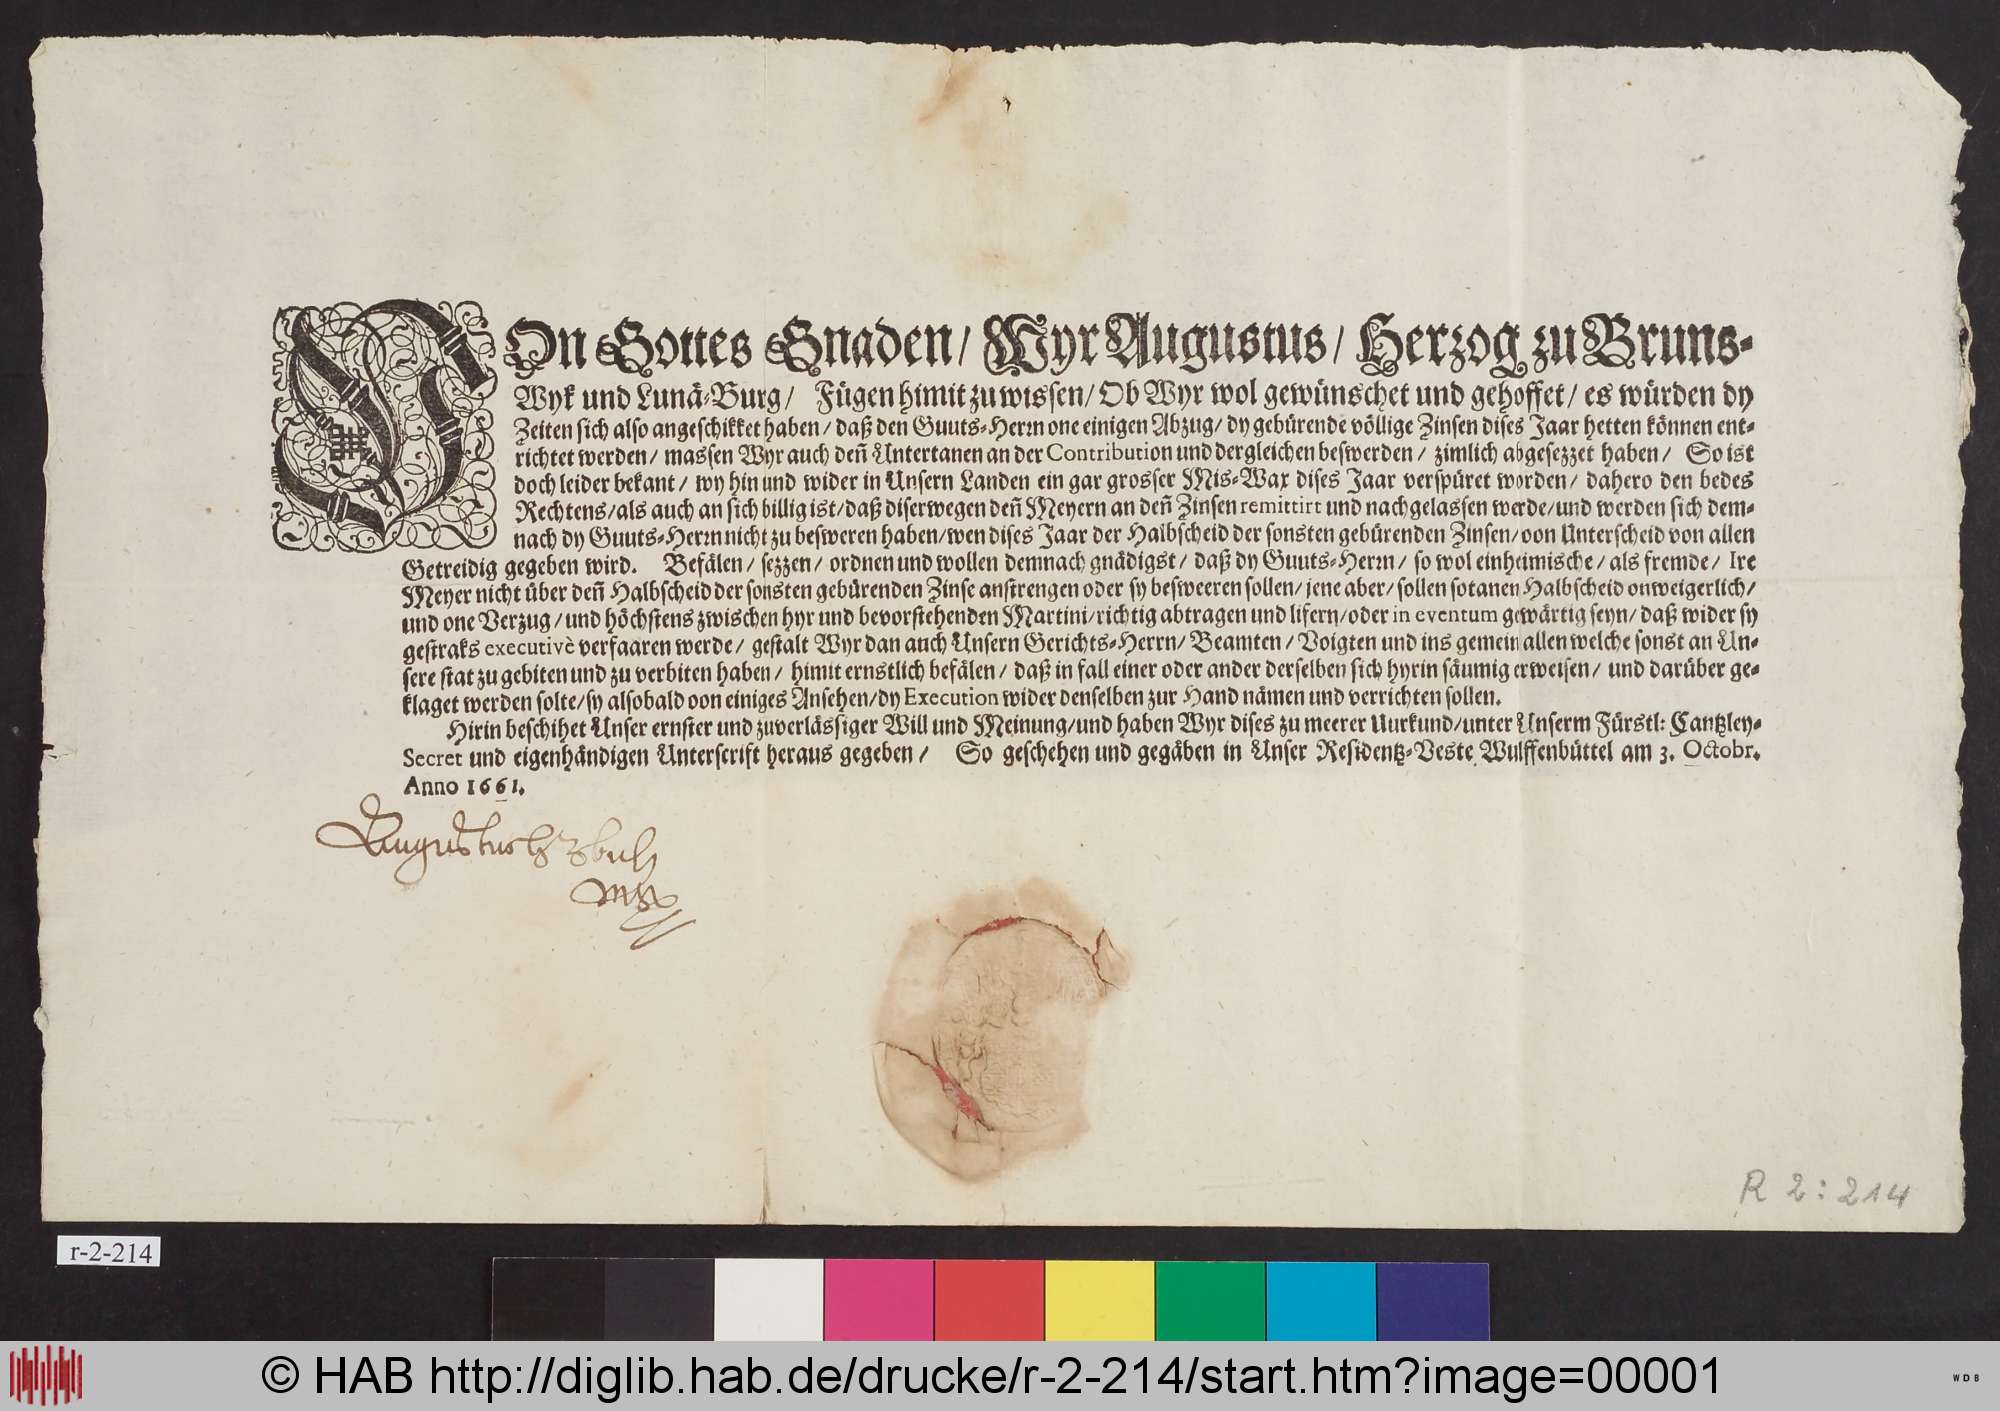 VOn Gottes Gnaden/ Wyr Augustus/ Herzog zu Bruns-
Wyk und Lunä-Burg/ Fügen himit zu wissen/ Ob Wyr wol gewünschet und gehoffet/ es würden dy
Zeiten sich also angeschikket haben/ daß den Guuts-Herrn one einigen Abzug/ dy gebürende völlige Zinsen dises Jaar hetten können ent-
richtet werden/ massen Wyr auch den̄ Untertanen an der Contribution und dergleichen beswerden/ zimlich abgesezzet haben/ So ist
doch leider bekant/ wy hin und wider in Unsern Landen ein gar grosser Mis-Wax dises Jaar verspüret worden/ dahero den bedes
Rechtens/ als auch an sich billig ist/ daß diserwegen den̄ Meyern an den̄ Zinsen remittirt und nachgelassen werde/ und werden sich dem-
nach dy Guuts-Herrn nicht zu besweren haben/ wen dises Jaar der Halbscheid der sonsten gebürenden Zinsen/ oon Unterscheid von allen
Getreidig gegeben wird. Befälen/ sezzen/ ordnen und wollen demnach gnädigst/ daß dy Guuts-Herrn/ so wol einheimische/ als fremde/ Ire
Meyer nicht über den̄ Halbscheid der sonsten gebürenden Zinse anstrengen oder sy besweeren sollen/ jene aber/ sollen sotanen Halbscheid onweigerlich/
und one Verzug/ und höchstens zwischen hyr und bevorstehenden Martini/ richtig abtragen und lifern/ oder in eventum gewärtig seyn/ daß wider sy
gestraks executivè verfaaren werde/ gestalt Wyr dan auch Unsern Gerichts-Herrn/ Beamten/ Voigten und ins gemein allen welche sonst an Un-
sere stat zu gebiten und zu verbiten haben/ himit ernstlich befälen/ daß in fall einer oder ander derselben sich hyrin säumig erweisen/ und darüber ge-
klaget werden solte/ sy alsobald oon einiges Ansehen/ dy Execution wider denselben zur Hand nämen und verrichten sollen.
Hirin beschihet Unser ernster und zuverlässiger Will und Meinung/ und haben Wyr dises zu meerer Uurkund/ unter Unserm Fürstl: Cantzley-
Secret und eigenhändigen Unterscrift heraus gegeben/ So geschehen und gegäben in Unser Residentz-Veste Wulffenbüttel am 3. Octobr.
Anno 1661.
Augustus
R 2: 214
r-2-214
© HAB http://diglib.hab.de/drucke/r-2-214/start.htm?image=00001
WDB